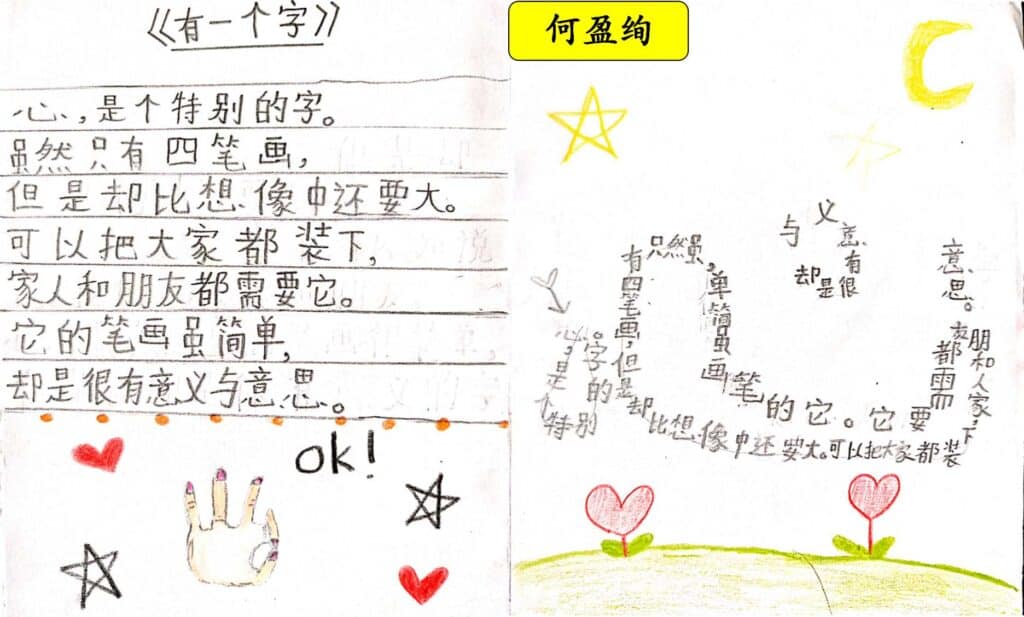 《有一个字》
心，是个特别的字。
虽然只有四笔画，
但是却比想像中还要大。
可以把大家都装下，
家人和朋友都需要它。
它的笔画虽简单，
却是很有意义与意思。
ok!
何盈绚
心，是个特别的字。
虽然只有四笔画，但是却比想像中还要大。可以把大家都装下，家人和朋友都需要它。它的笔画虽简单，
却是很有意义与
意思。